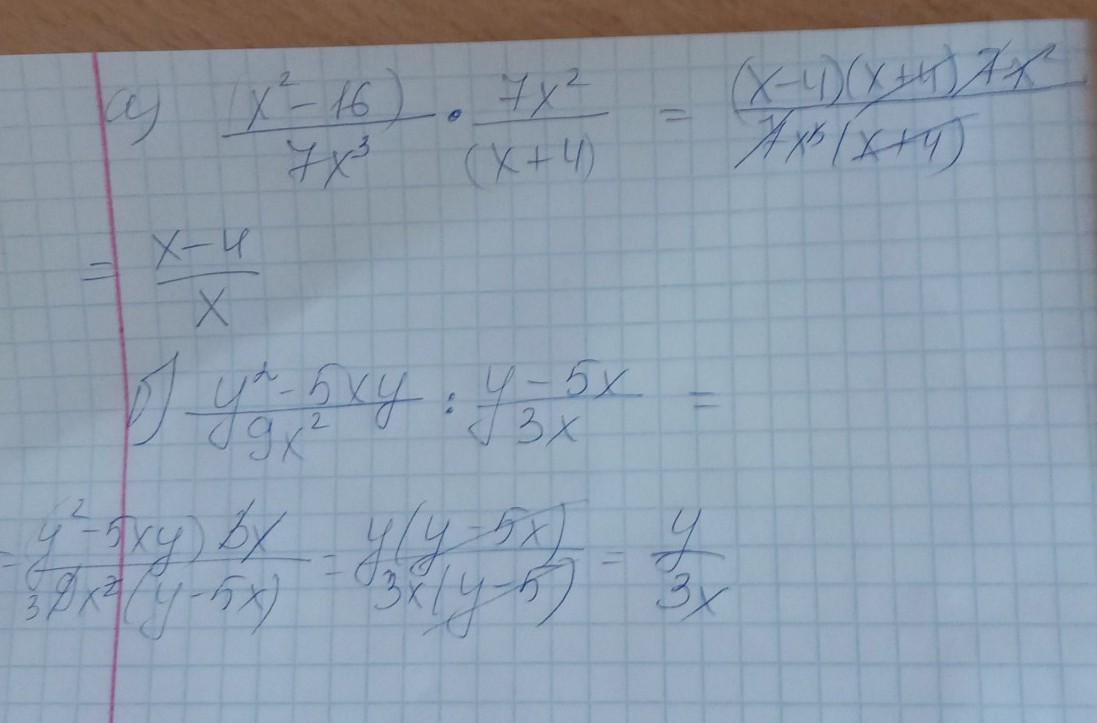 а) (x² - 16) / 7x³ · 7x² / (x + 4) = (x - 4)(x + 4) 7x² / 7x³ (x + 4)
= x - 4 / x
б) y² - 5xy / 9x² : y - 5x / 3x =
= y² - 5xy) 3x / 3 9x² (y - 5x) = y(y - 5x) / 3x(y - 5) = y / 3x